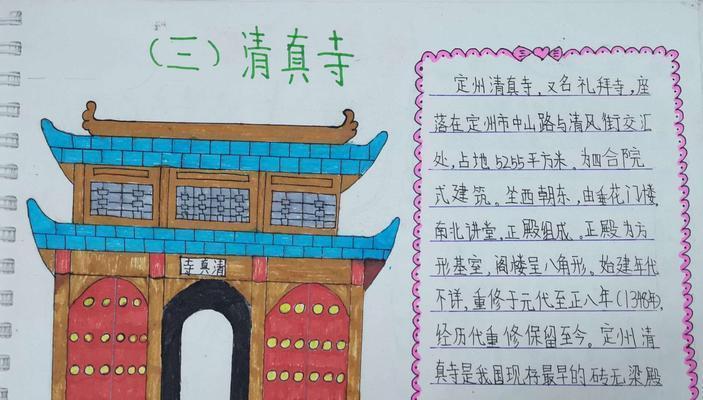 （三）清真寺
清真寺
定州清真寺，又名礼拜寺，座
落在定州市中山路与清风街交汇
处，占地5255平方米。为四合院
式建筑。坐西朝东，由垂花门楼，
南北讲堂，正殿组成。正殿为方
形基室，阁楼呈八角形。始建年代
不详，重修于元代至正八年（1348年），
经历代重修保留至今。定州清
真寺是我国现存最早的砖无梁殿